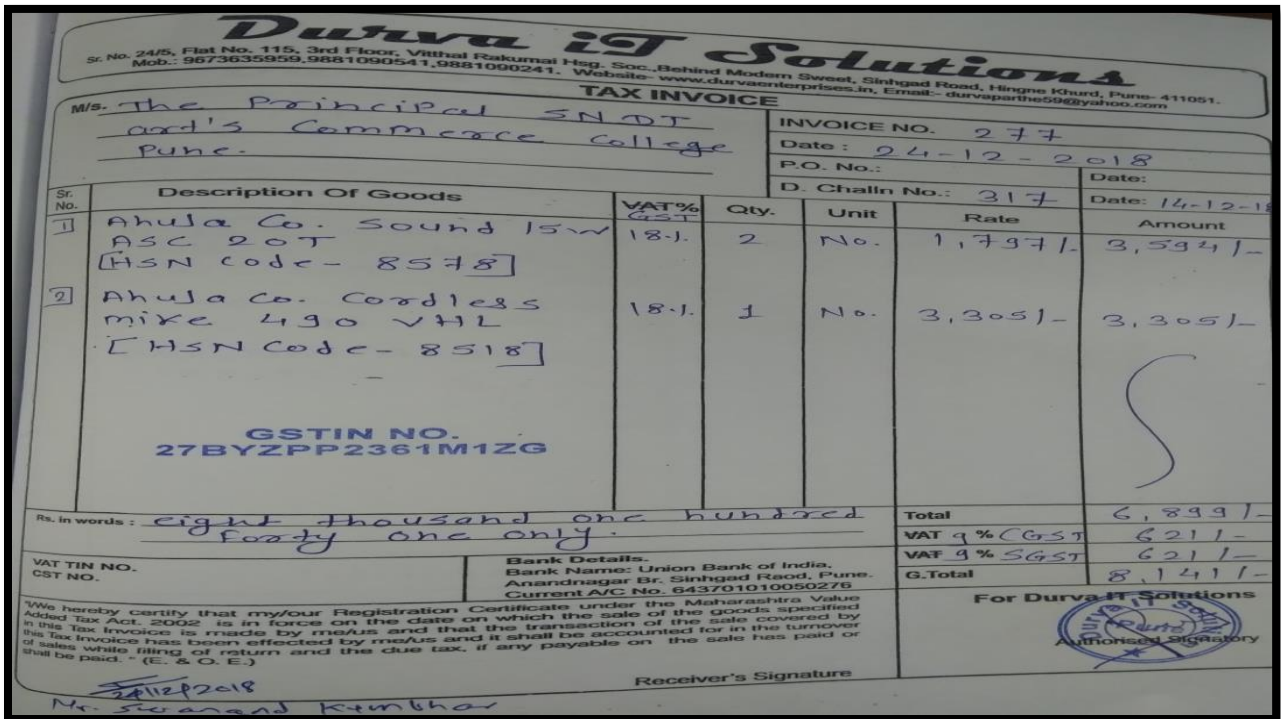 Durva iT Solutions
Sr. No. 24/5, Flat No. 115, 3rd Floor, Vitthal Rakumai Hsg. Soc.,Behind Modern Sweet, Sinhgad Road, Hingne Khurd, Pune- 411051.
Mob.: 9673635959,9881090541,9881090241. Website- www.durvaenterprises.in, Email:- durvaparthe59@yahoo.com
TAX INVOICE
M/s. The Principal SNDT
art's Commerce College
Pune.
INVOICE NO. 277
Date : 24-12-2018
P.O. No.: Date:
D. Challn No.: 317 Date: 14-12-18
Sr. No. Description Of Goods VAT% GST Qty. Unit Rate Amount
1 Ahuja Co. Sound 15w 18.1. 2 No. 1,797/- 3,594/-
ASC 20T
[HSN Code- 8578]
2 Ahuja Co. Cordless 18.1. 1 No. 3,305/- 3,305/-
mike 490 VHL
[HSN Code- 8518]
GSTIN NO.
27BYZPP2361M1ZG
Rs. in words : eight thousand one hundred
Forty one only.
Total 6,899/-
VAT 9 % CGST 621/-
VAT 9 % SGST 621/-
G.Total 8,141/-
VAT TIN NO.
CST NO.
Bank Details.
Bank Name: Union Bank of India,
Anandnagar Br. Sinhgad Raod, Pune.
Current A/C No. 643701010050276
"I/We hereby certify that my/our Registration Certificate under the Maharashtra Value
Added Tax Act. 2002 is in force on the date on which the sale of the goods specified
in this Tax Invoice is made by me/us and that the transaction of the sale covered by
this Tax Invoice has been effected by me/us and it shall be accounted for in the turnover
of sales while filing of return and the due tax, if any payable on the sale has paid or
shall be paid. " (E. & O. E.)
For Durva IT Solutions
Durva iT Solutions
Pune
Authorised Signatory
Receiver's Signature
24/12/2018
Mr.